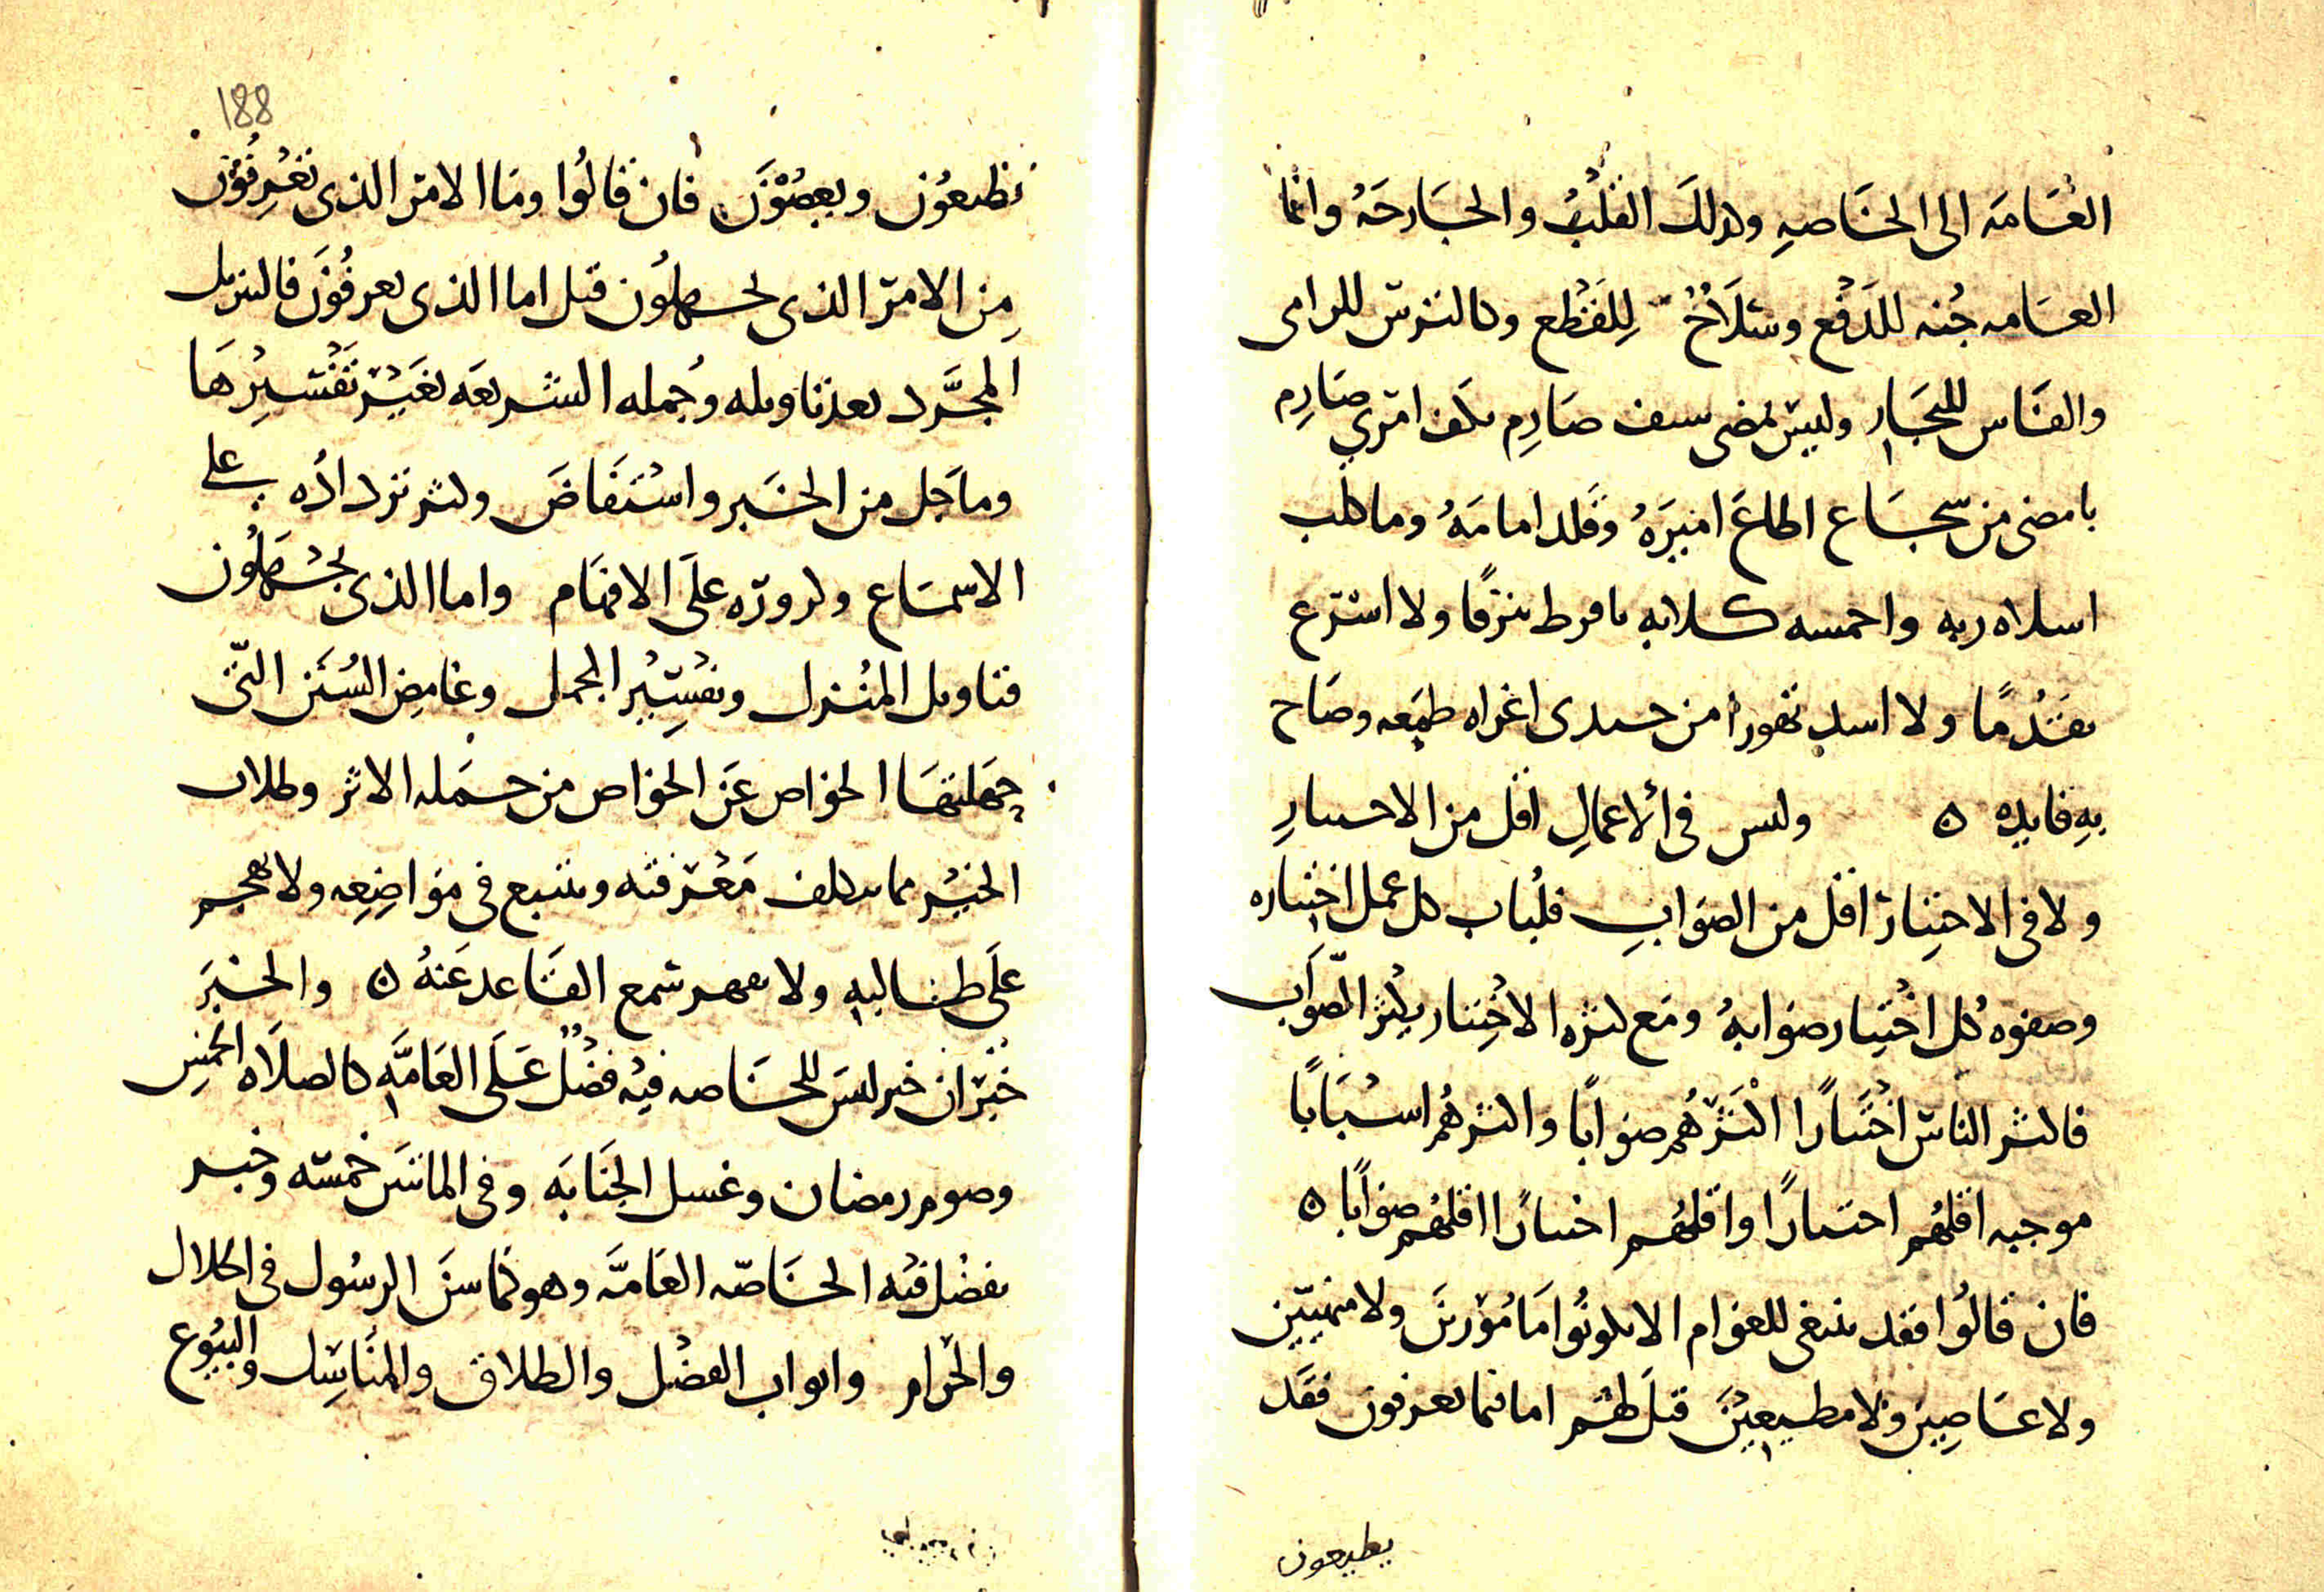 العامه الى الخاصه وكذلك القلب والجارحه وانما
العامه جنه للدفع وسلاح للقطع وكالترس للرامى
والفاس للنجار وليس بمضى سيف صارم بكف امرى صارم
بامضى من شجاع اطاع اميره وقلد امامه وما كلب
اسلاه ربه واحمسه كلابه بافرط نزقا ولا اسرع
تقدما ولا اسد تهورا من جندى اغراه طمعه وصاح
به قايده ه وليس فى الاعمال اقل من الاختيار
ولا فى الاختيار اقل من الصواب فلباب كل عمل اختياره
وصفوه كل اختيار صوابه ومع كثره الاختيار يكثر الصواب
فاكثر الناس اختيارا اكثرهم صوابا واكثرهم اسبابا
موجبه اقلهم اختيارا واقلهم اختيارا اقلهم صوابا ه
فان قالوا فقد ينبغى للعوام الا يكونوا مامورين ولا منهيين
ولا عاصين ولا مطيعين قيل لهم اما فيما يعرفون فقد
يطيعون
188
يطيعون ويعصون فان قالوا وما الامر الذى يعرفون
من الامر الذى يجهلون قيل اما الذى يعرفون فالتنزيل
المجرد بعد تاويله وجمله الشريعه بغير تفسيرها
وما جل من الخبر واستفاض وكثر ترداده على
الاسماع وكروره على الافهام واما الذى يجهلون
فتاويل المنزل وتفسير المجمل وغامض السنن التى
حملتها الخواص عن الخواص من حمله الاثر وطلاب
الخبر مما يتكلف معرفته ويتتبع فى مواضعه ولا يهجم
على طالبه ولا يقهر سمع القاعد عنه ه والخبر
خبران خبر ليس للخاصه فيه فضل على العامه كالصلاه الخمس
وصوم رمضان وغسل الجنابه وفى المائتين خمسه وخبر
يفضل فيه الخاصه العامه وهو كما سن الرسول فى الحلال
والحرام وابواب الفضل والطلاق والمناسك والبيوع